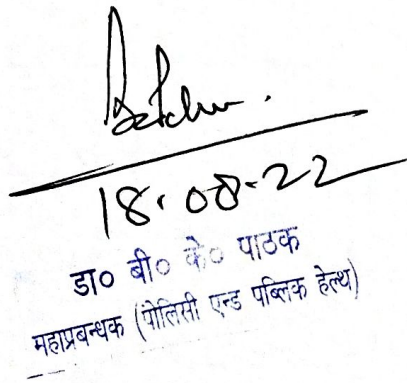 18.08.22
डा० बी० के० पाठक
महाप्रबन्धक (पोलिसी एन्ड पब्लिक हेल्थ)